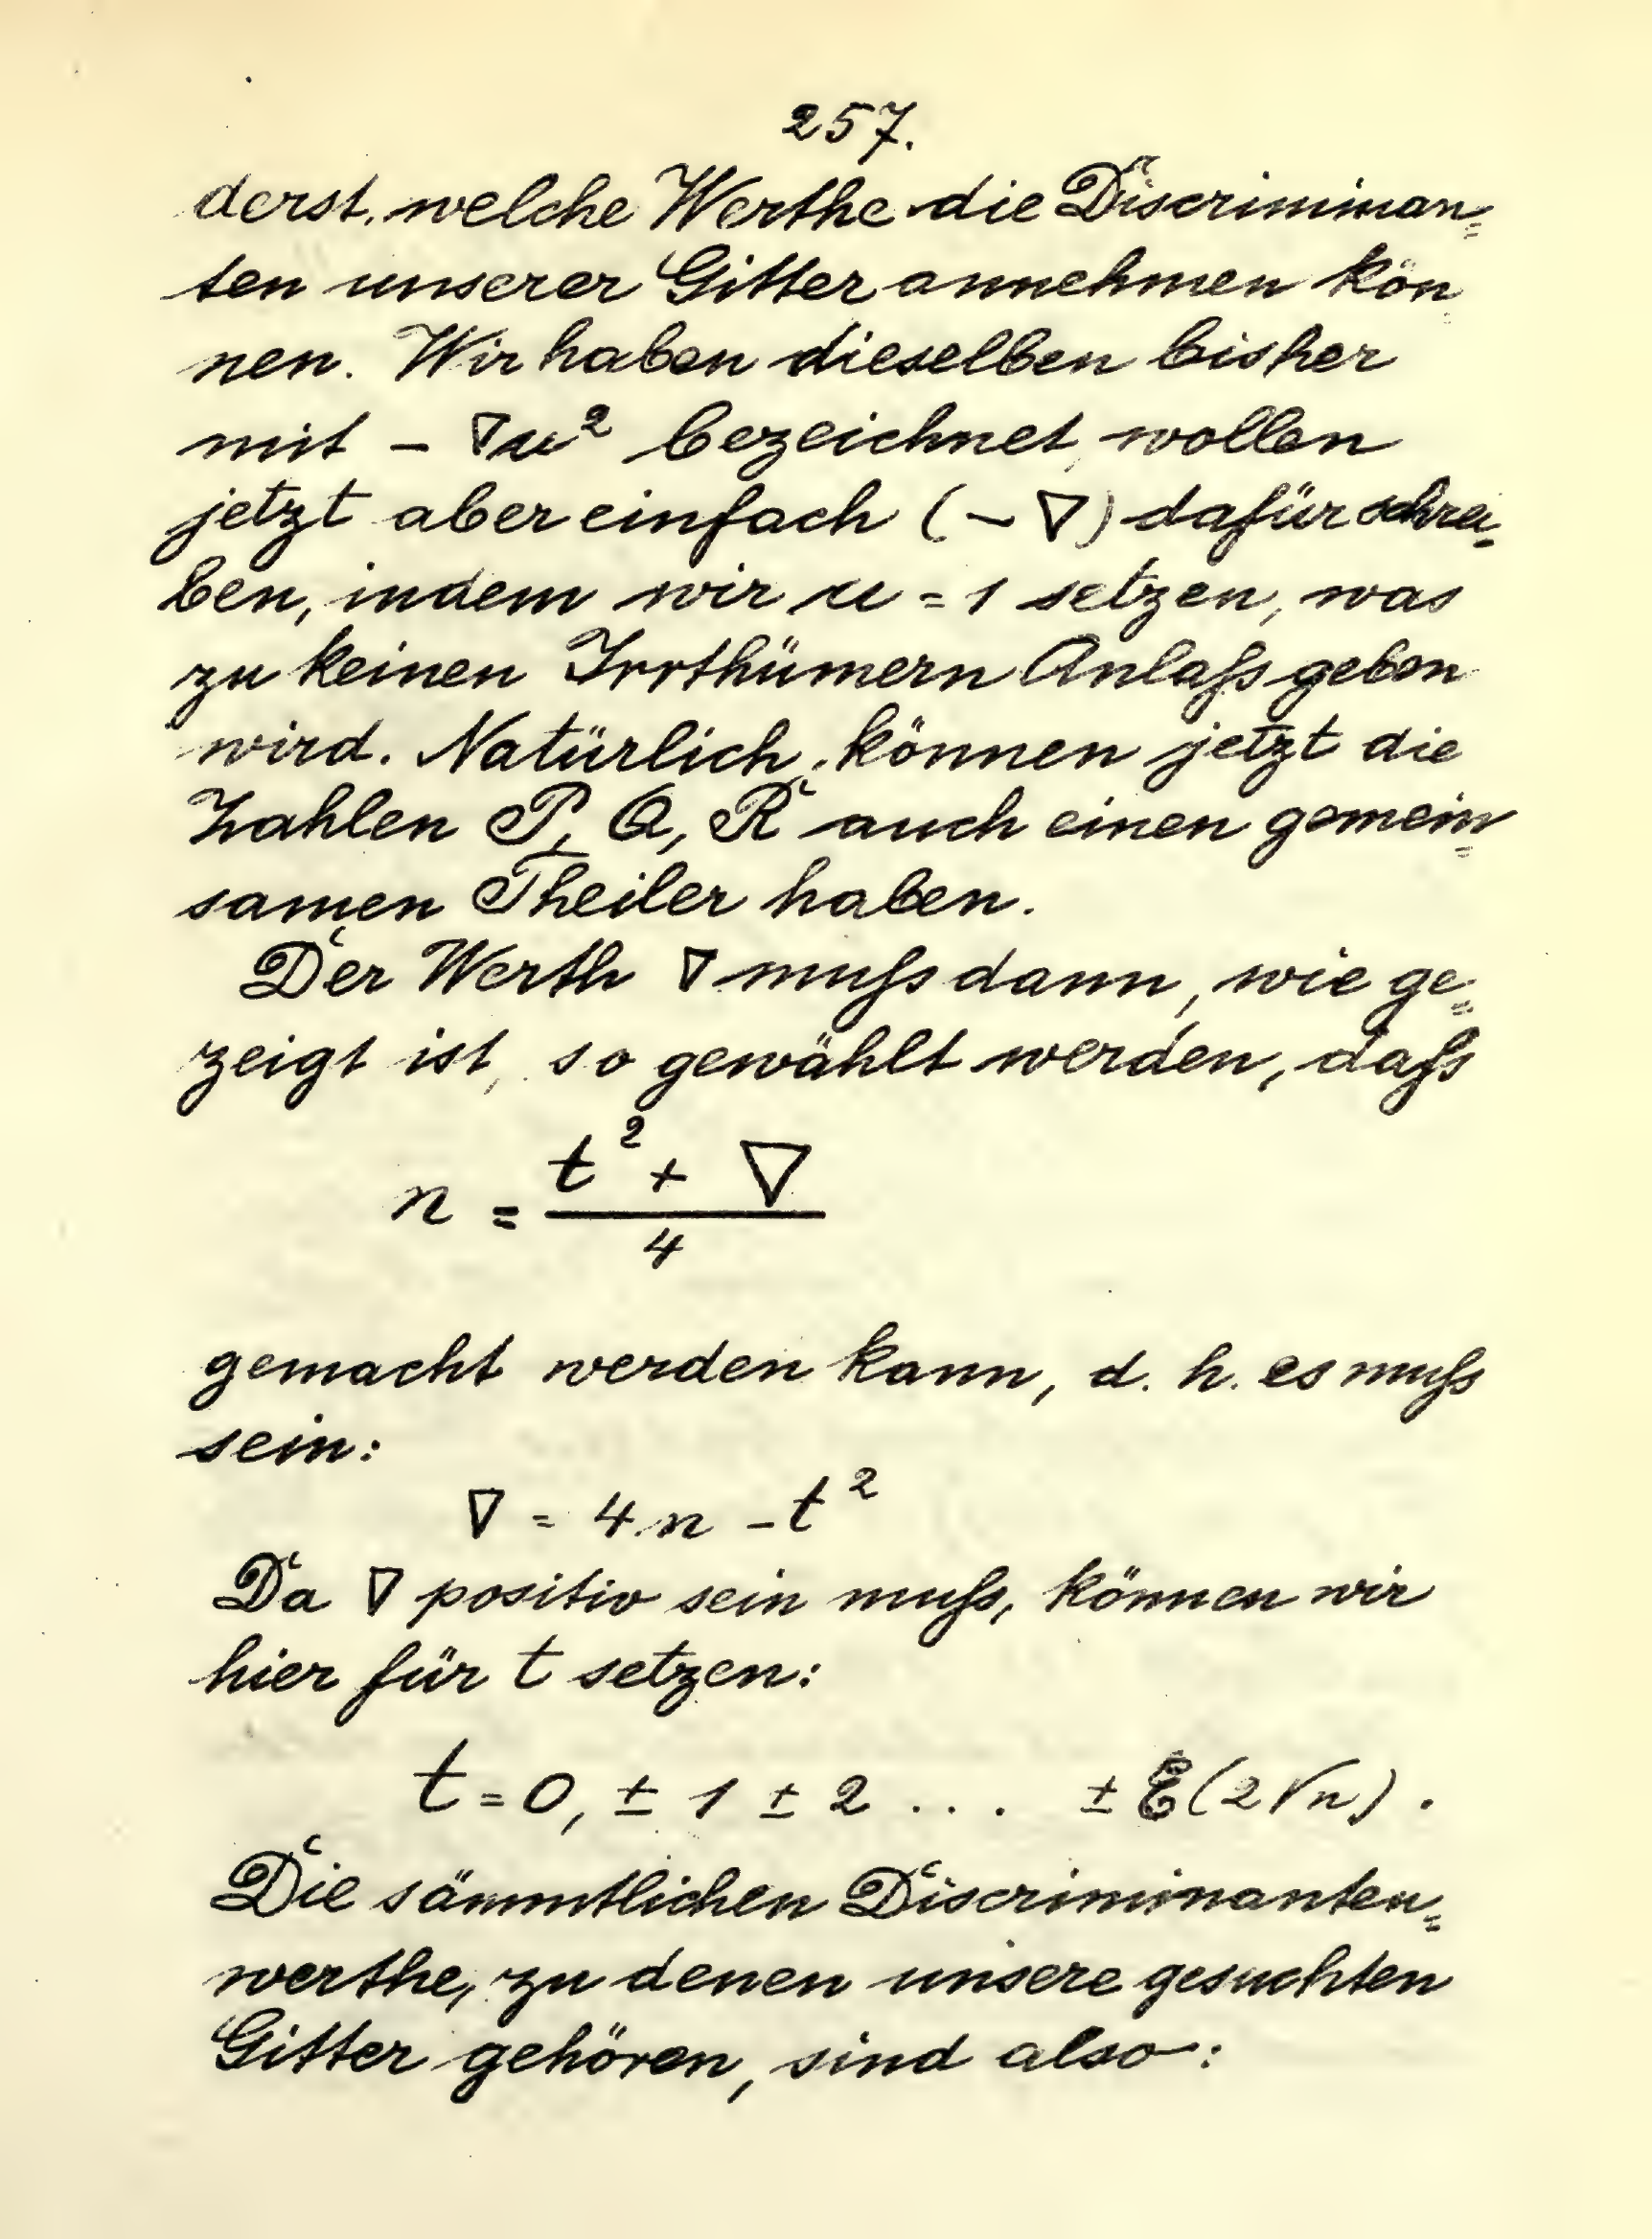 257.
derst, welche Werthe die Discriminan=
ten unserer Gitter annehmen kön=
nen. Wir haben dieselben bisher
mit - ∇u² bezeichnet, wollen
jetzt aber einfach (-∇) dafür schrei-
ben, indem wir u = 1 setzen, was
zu keinen Irrthümern Anlaſs geben
wird. Natürlich können jetzt die
Zahlen P, Q, R auch einen gemein=
samen Theiler haben.
Der Werth ∇ muſs dann, wie ge=
zeigt ist, so gewählt werden, daſs
n = (t² + ∇)/4
gemacht werden kann, d. h. es muſs
sein:
∇ = 4n - t²
Da ∇ positiv sein muſs, können wir
hier für t setzen:
t = 0, ± 1 ± 2 ... ± E(2√n).
Die sämmtlichen Discriminanten=
werthe, zu denen unsere gesuchten
Gitter gehören, sind also: